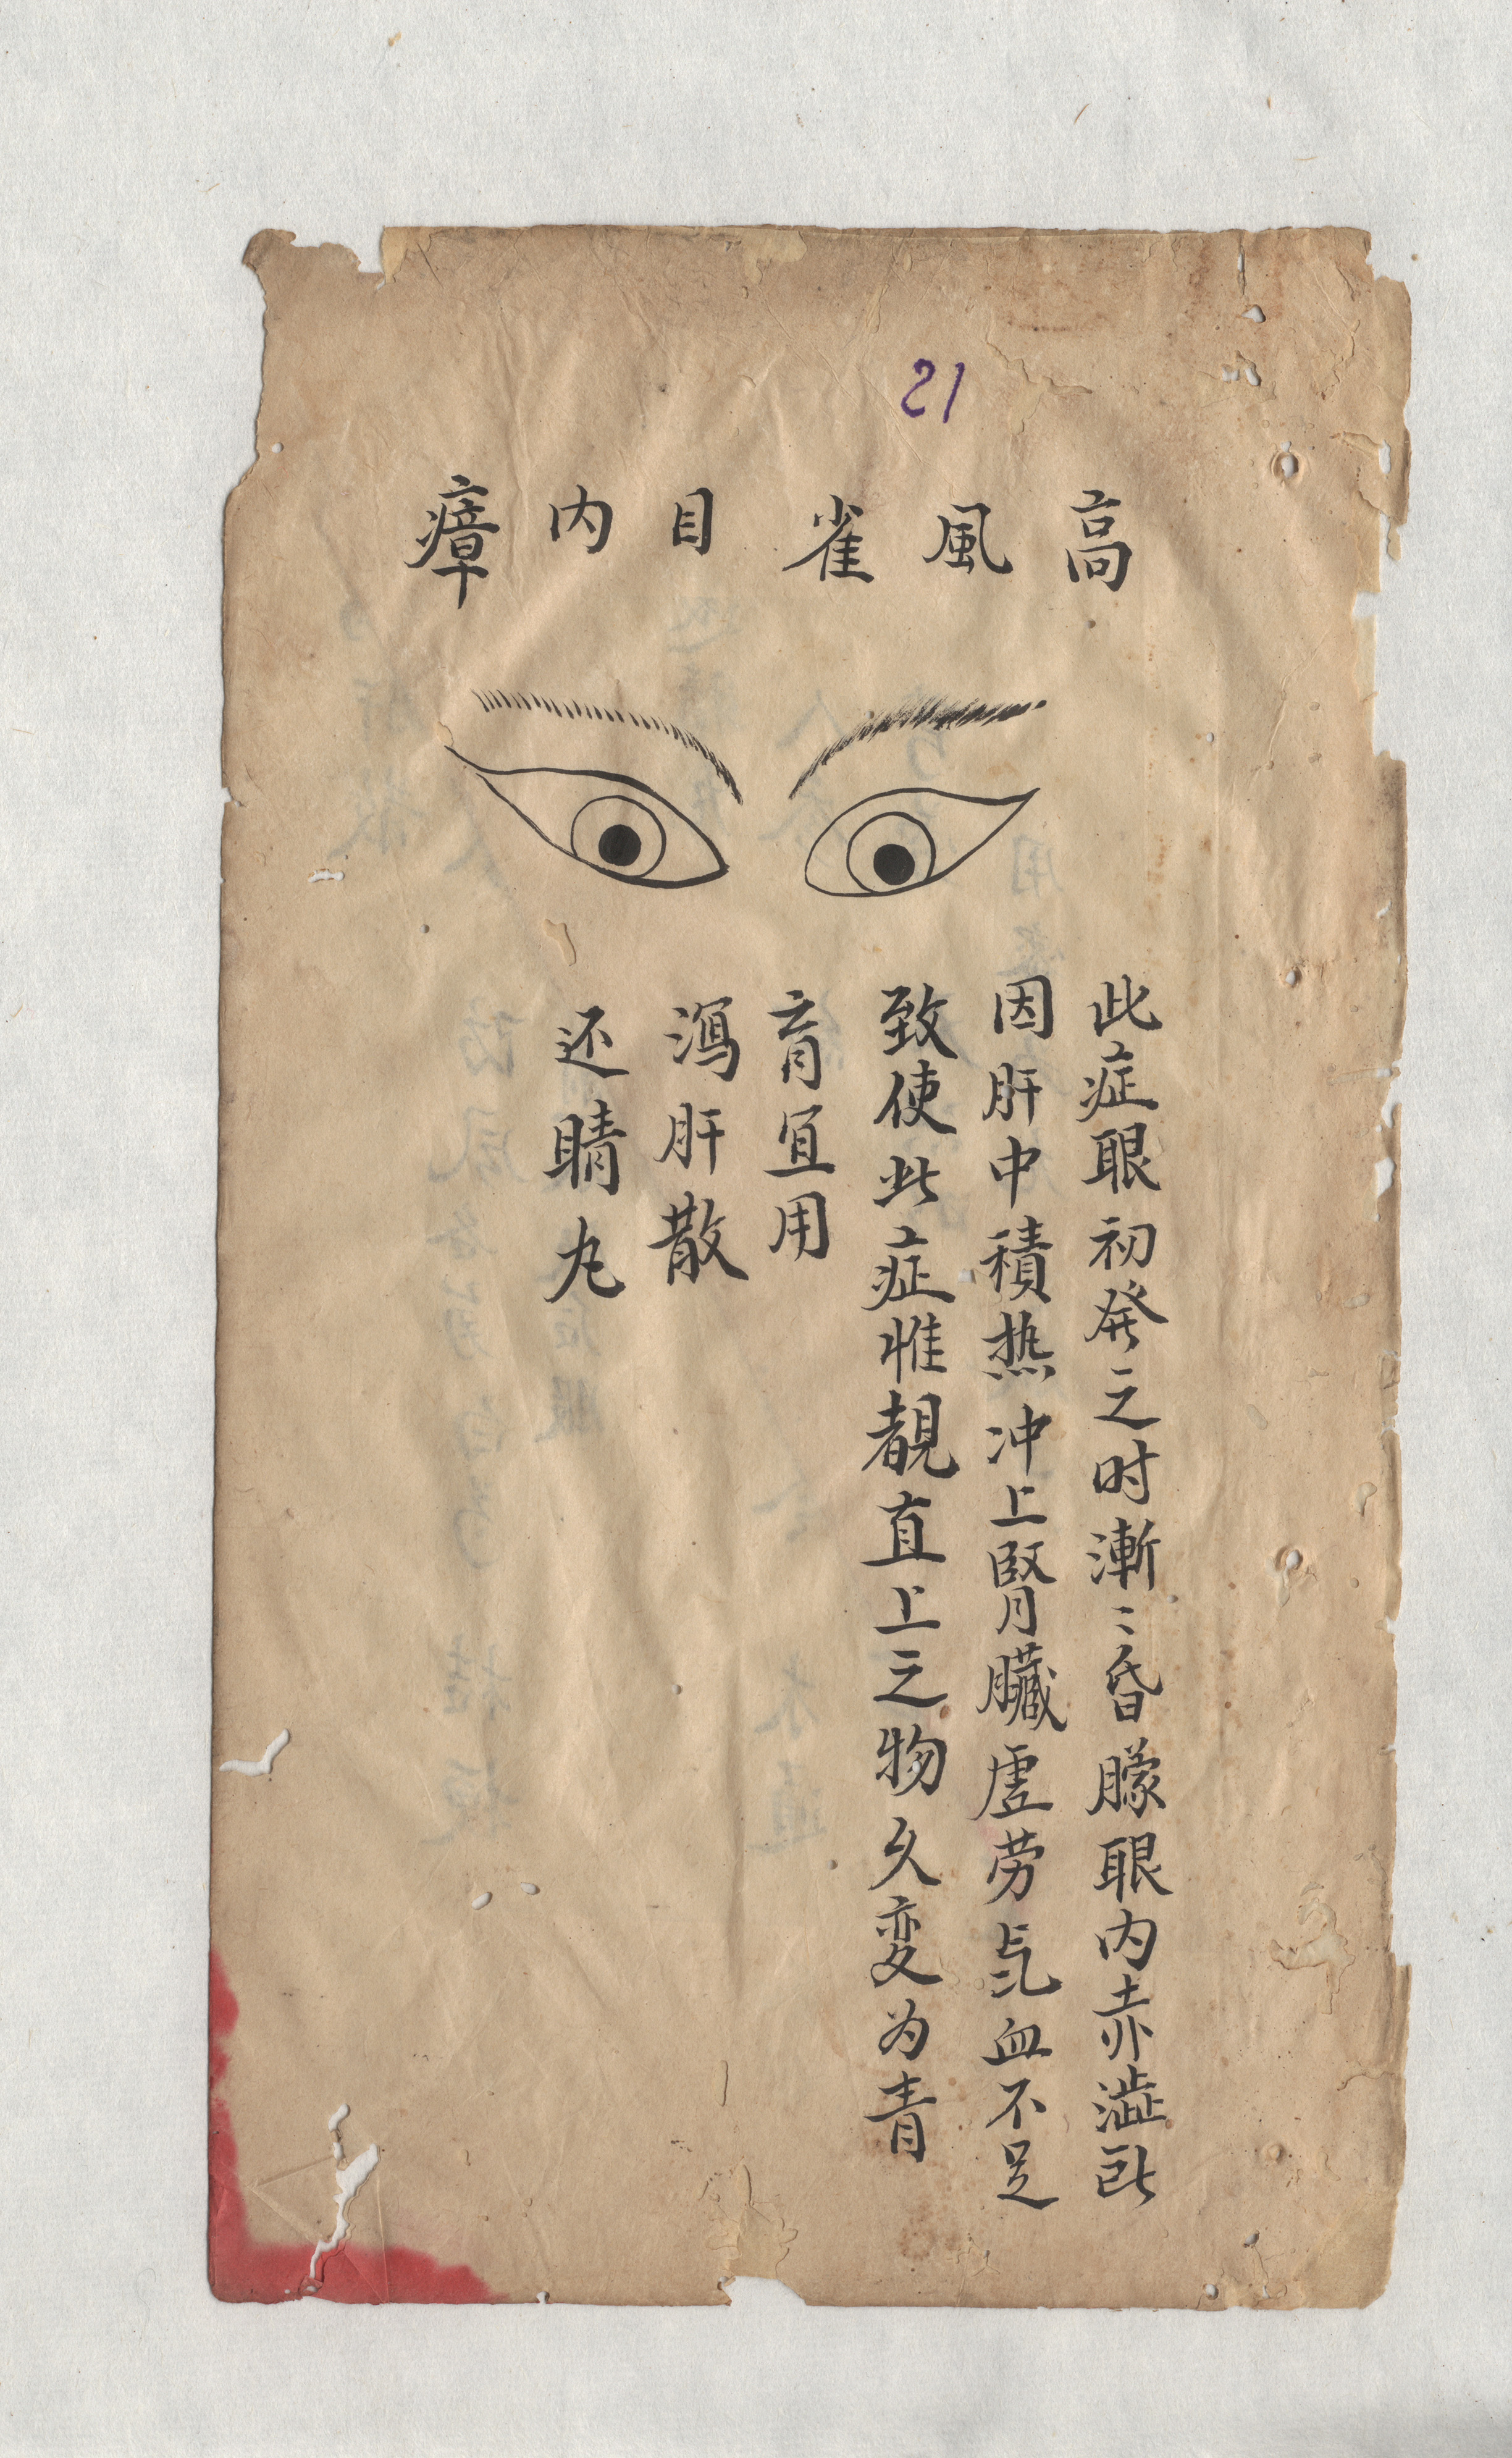 21
高風雀目内瘴
此症眼初発之时漸〻昏朦眼内赤澁此
因肝中積热冲上腎臟虛劳氣血不足
致使此症惟覩直上之物久変为青
盲宜用
瀉肝散
还睛丸